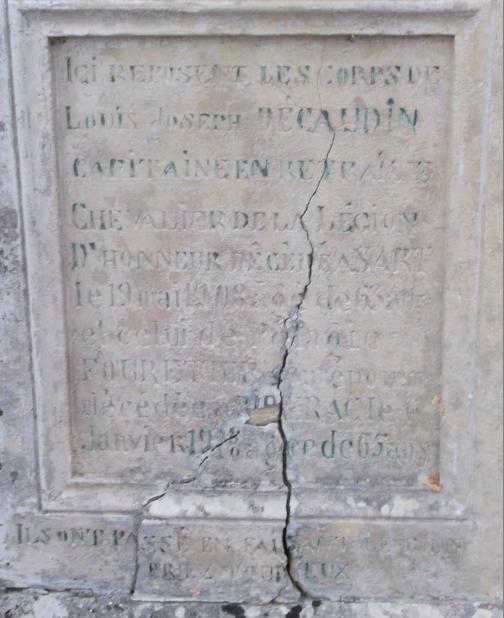 ICI REPOSENT LES CORPS DE
LOUIS JOSEPH DÉCAUDIN
CAPITAINE EN RETRAITE
CHEVALIER DE LA LÉGION
D'HONNEUR DÉCÉDÉ A SART
le 19 mai 1908 age de 63 ans
et celui de
FOURETIER son épouse
décédée a le
Janvier agée de 65 ans
ILS ONT PASSÉ EN FAISANT LE BIEN
PRIEZ POUR EUX